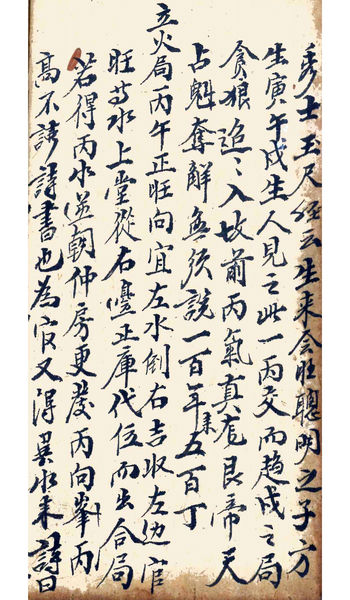 秀士玉尺經云生來會旺聰明之子方
生寅午戌生人見之此一丙交而趨戌之局
貪狼追〻入坟前丙氣真龙艮帝天
占魁奪解無須說一百年来五百丁
立火局丙午正旺向宜左水倒右吉收左边官
旺方水上堂從右邊正庫代位而出合局
若得丙水逆朝仲房更發丙向峯丙
高不讀詩書也為官又得巽水来詩曰